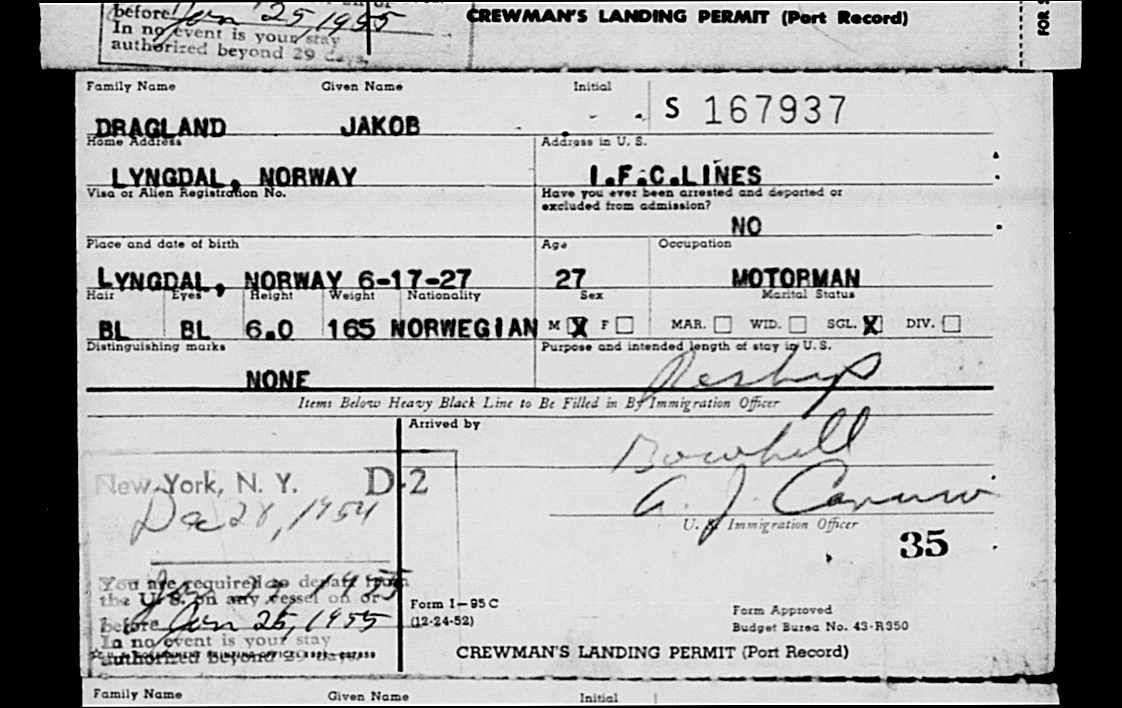 before Jan 25, 1955
In no event is your stay
authorized beyond 29 days.
CREWMAN'S LANDING PERMIT (Port Record)
FOR S
Family Name Given Name Initial
DRAGLAND JAKOB
S 167937
Home Address Address in U. S.
LYNGDAL, NORWAY I.F.C.LINES
Visa or Alien Registration No. Have you ever been arrested and deported or
excluded from admission?
NO
Place and date of birth Age Occupation
LYNGDAL, NORWAY 6-17-27 27 MOTORMAN
Hair Eyes Height Weight Nationality Sex Marital Status
BL BL 6.0 165 NORWEGIAN M X F MAR. WID. SGL. X DIV.
Distinguishing marks Purpose and intended length of stay in U. S.
NONE Reship
Items Below Heavy Black Line to Be Filled in By Immigration Officer
Arrived by
Bowhill
New York, N. Y. D-2
Dec 28, 1954
A. J.
U. S. Immigration Officer
35
You are required to depart from
the U. S. on any vessel on or
before Jan 25, 1955
In no event is your stay
authorized beyond 29 days.
Form I-95 C
(12-24-52)
Form Approved
Budget Burea No. 43-R350
CREWMAN'S LANDING PERMIT (Port Record)
Family Name Given Name Initial